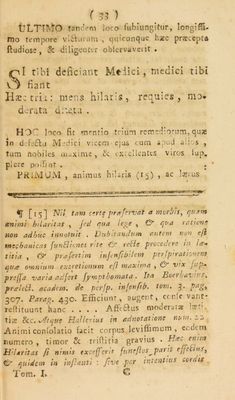 ( 33 )
ULTIMO tandem loco subiungitur, longissi-
mo tempore victurum, quicunque hæc præcepta
studiose, & diligenter observaverit.
SI tibi deficiant Medici, medici tibi
fiant
Hæc tria: mens hilaris, requies, mo-
derata diæta.
HOC loco fit mentio trium remediorum, quæ
in defectu Medici vicem ejus cum apud alios,
tum nobiles maxime, & excellentes viros sup-
plere possint.
PRIMUM, animus hilaris (15), ac lætus
¶ [15] Nil tam certe præservat a morbis, quam
animi hilaritas, sed qua lege, & qua ratione
non adhuc innotuit. Dubitandum autem non est
mechanicas functiones rite & recte procedere in læ-
titia, & præsertim insensibilem perspirationem
quæ omnium excretionum est maxima, & vix sup-
pressa varia adfert symptomata. Ita Boerhavius,
prælect. academ. de persp. insensib. tom. 3. pag.
307. Parag. 430. Efficiunt, augent, conservant-
restituunt hanc .... Affectus moderatæ læti-
tiæ &c. Atque Hallerius in adnotatione num. 22.
Animi consolatio facit corpus levissimum, eodem
numero, timor & tristitia gravius. Hæc enim
Hilaritas si nimis excesserit funestos parit effectus,
& quidem in instanti: sive per intentius cordis
Tom. I. C